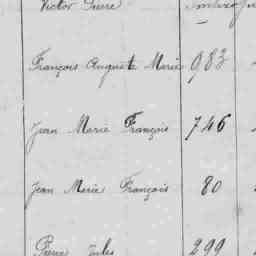 Victor Pierre
François Auguste Marie 983
Jean Marie François 746
Jean Marie François 80
Pierre Jules 299